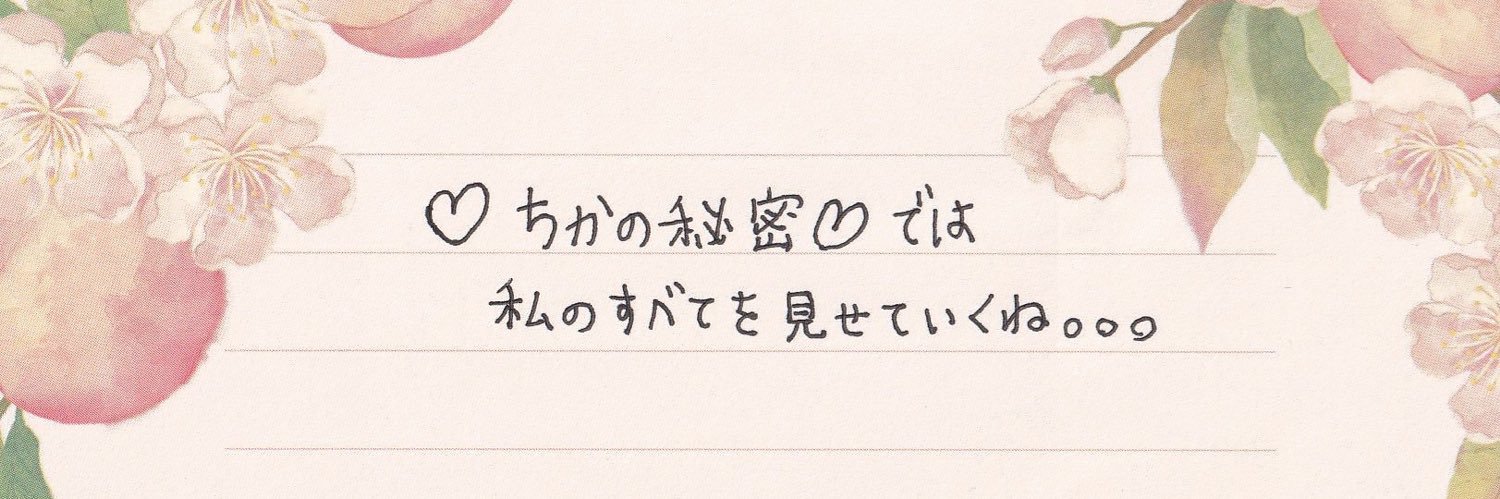 ♡ちかの秘密♡では
私のすべてを見せていくね。。。